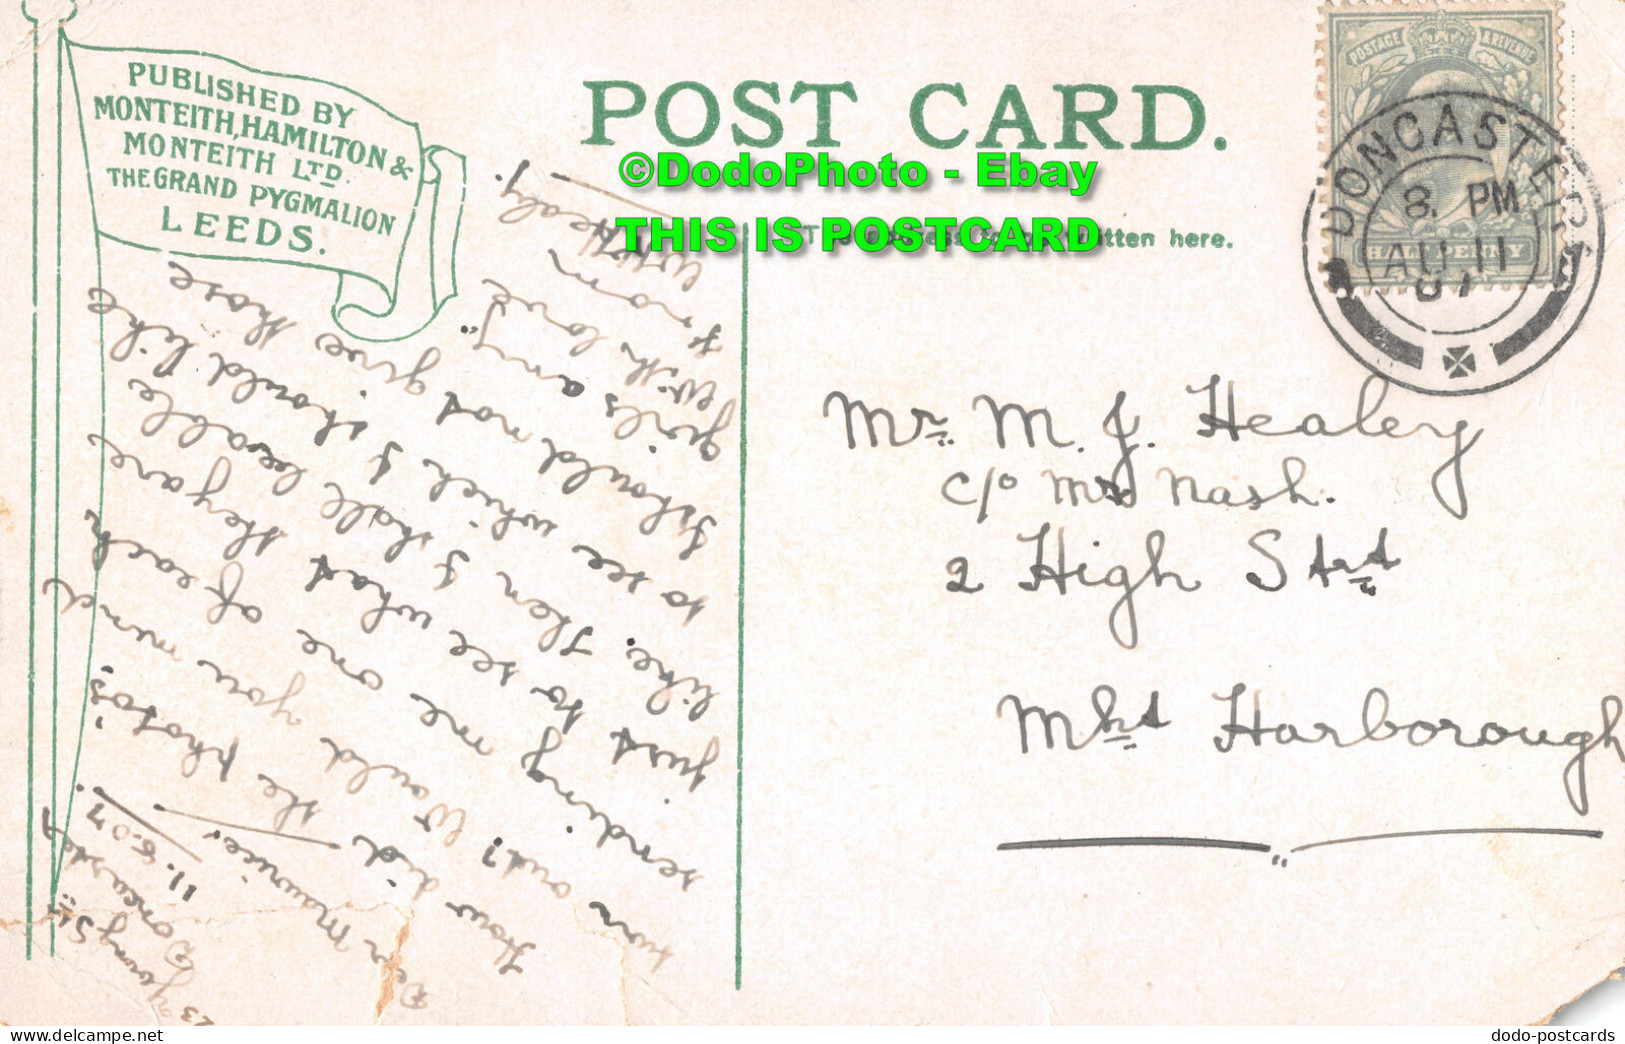 PUBLISHED BY
MONTEITH, HAMILTON &
MONTEITH LTD.
THE GRAND PYGMALION
LEEDS.
POST CARD.
©DodoPhoto - Ebay
THIS IS POSTCARD
written here.
POSTAGE & REVENUE
HALF PENNY
DONCASTER
8. PM
AU 11
07
Mr. M. J. Healey
c/o Mrs Nash.
2 High Strt
Mkt Harborough
23 Young St
Doncaster
11.8.07.
Dear Maurice
How did the photos
turn out? Would you mind
sending me one of each
just to see what they are
like. Then I shall be able
to see which I should like
I should not give those
girls any."
With love
From
Wyth Healey.
dodo-postcards